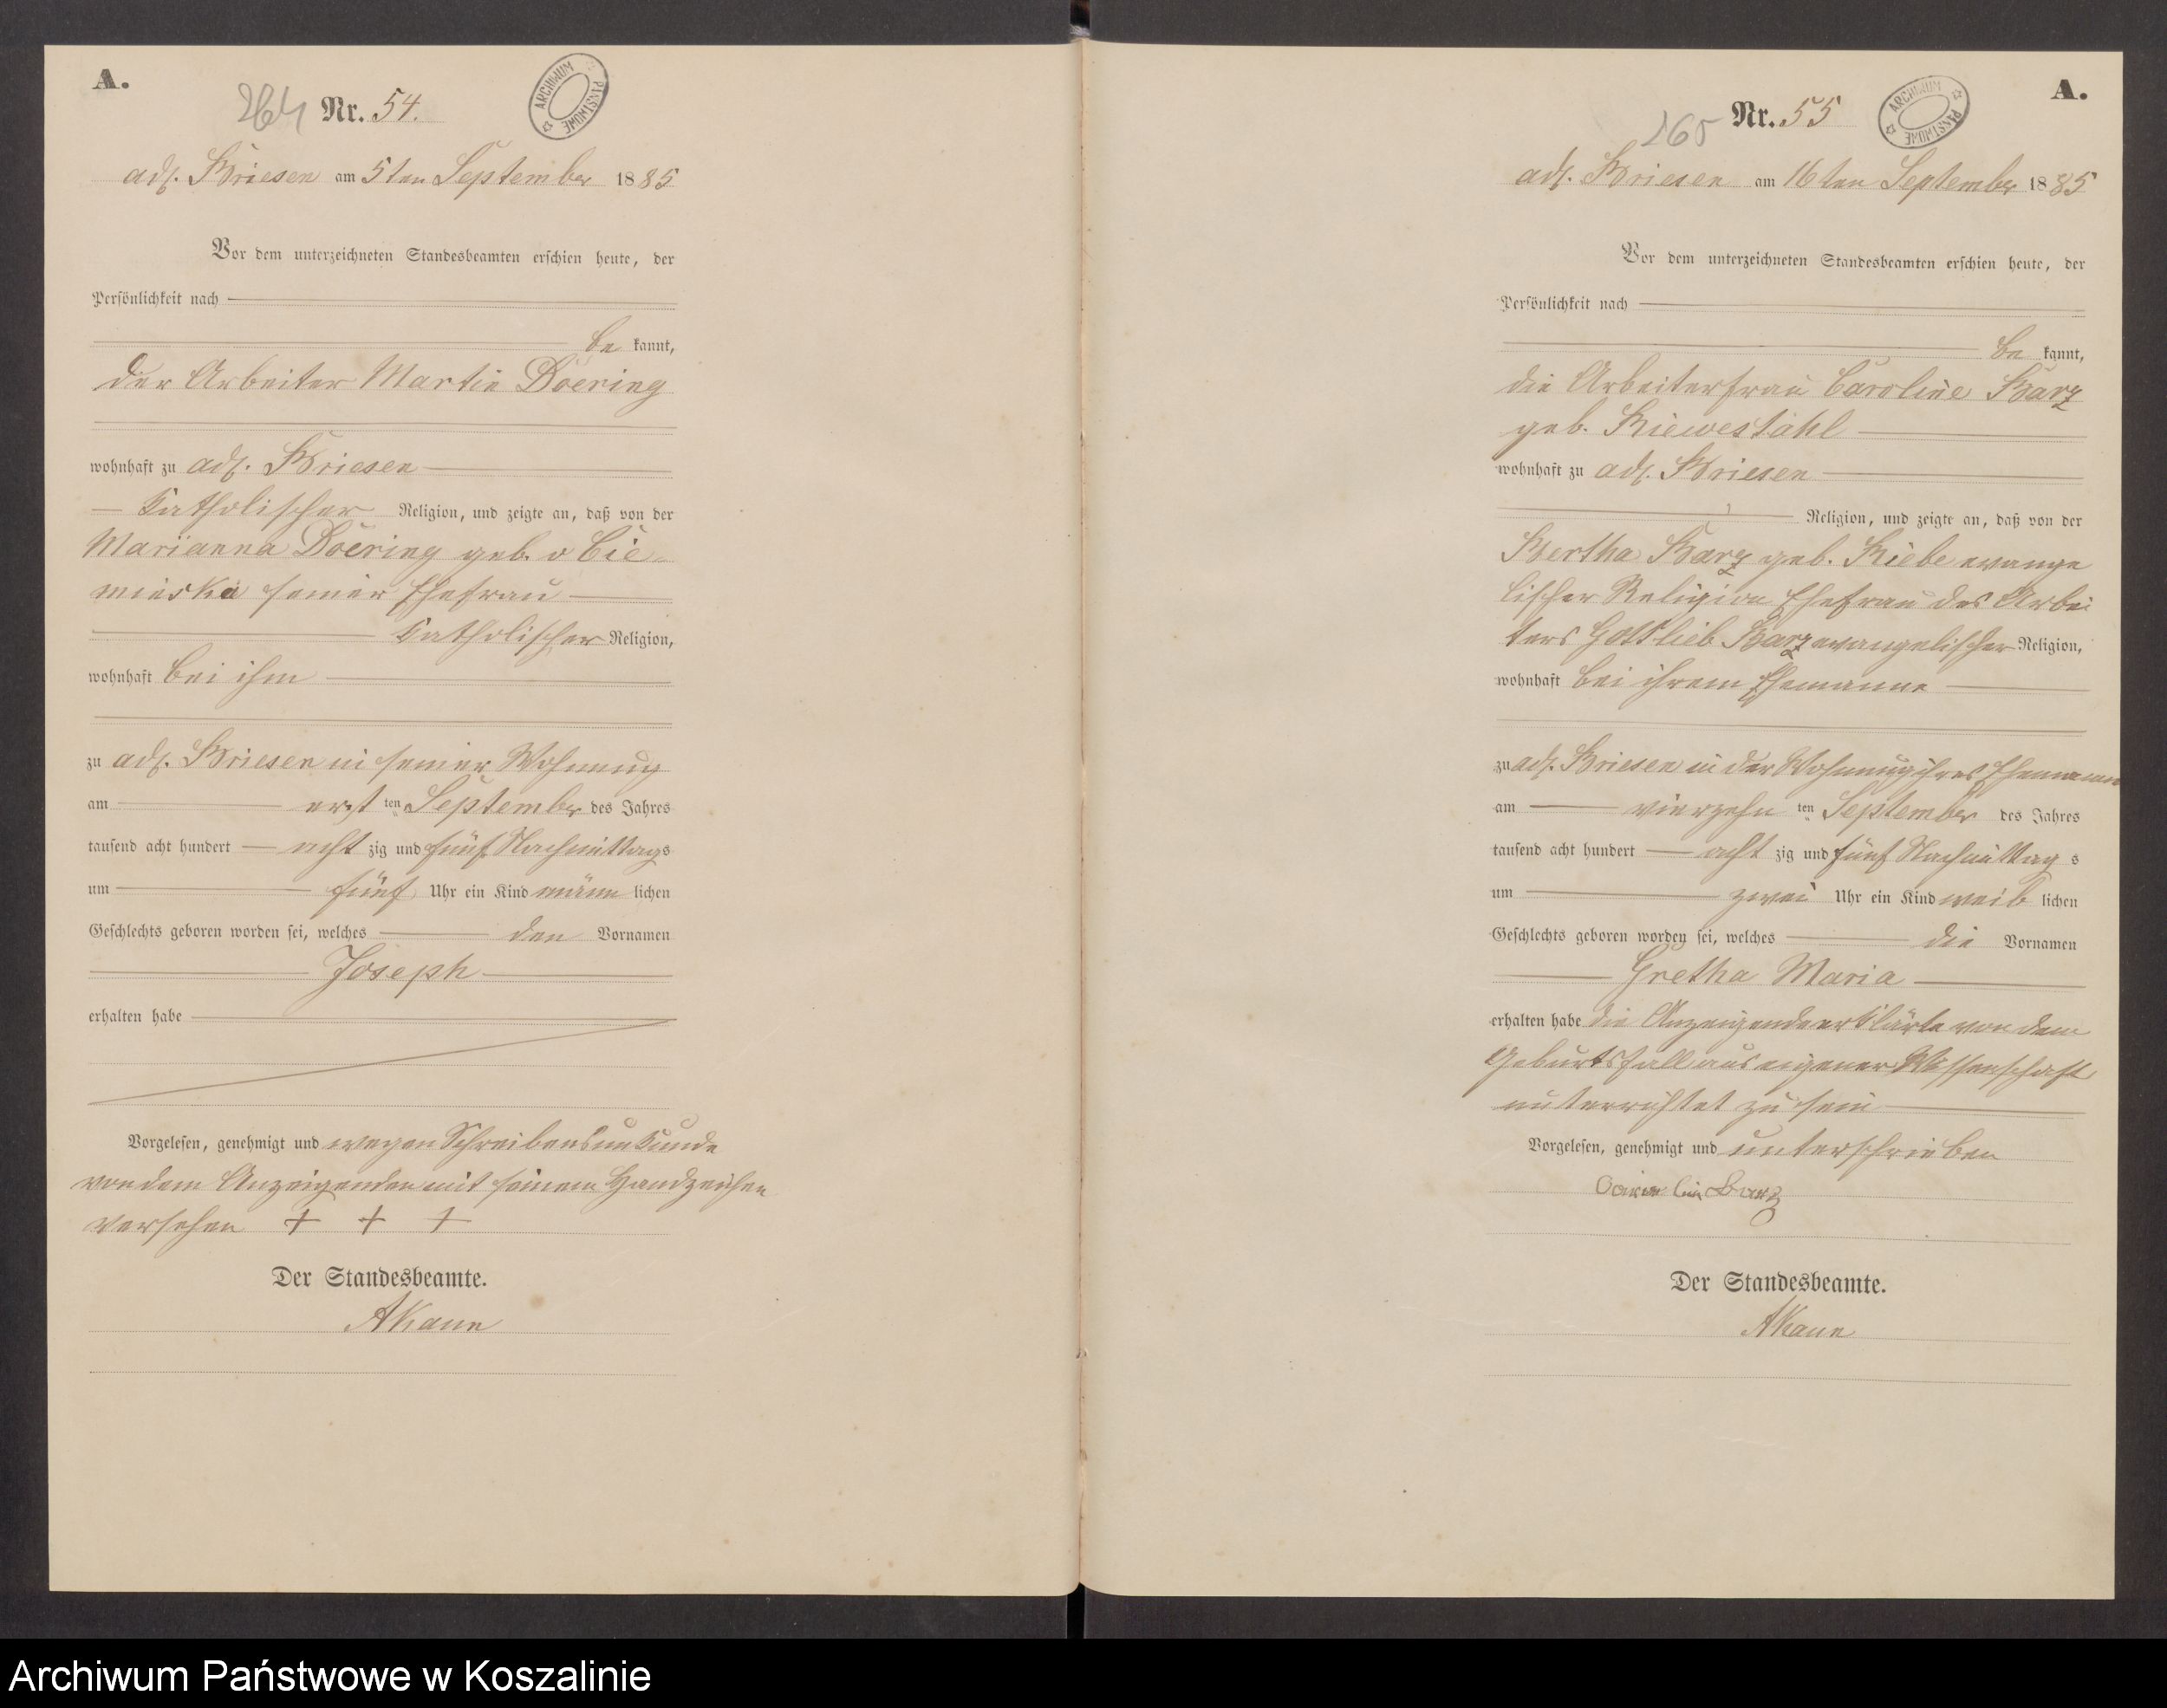 A.
264 Nr. 54.
ARCHIWUM PAŃSTWOWE
adl. Briesen am 5ten September 1885
Vor dem unterzeichneten Standesbeamten erschien heute, der
Persönlichkeit nach
be kannt,
der Arbeiter Martin Doering
wohnhaft zu adl. Briesen
katholischer Religion, und zeigte an, daß von der
Marianna Doering geb. v Cie-
minska seiner Ehefrau
katholischer Religion,
wohnhaft bei ihm
zu adl. Briesen in seiner Wohnung
am erst ten September des Jahres
tausend acht hundert acht zig und fünf Nachmittags
um fünf Uhr ein Kind männ lichen
Geschlechts geboren worden sei, welches den Vornamen
Joseph
erhalten habe
Vorgelesen, genehmigt und wegen Schreibensunkunde
von dem Anzeigenden mit seinem Handzeichen
versehen + + +
Der Standesbeamte.
AKaun
A.
265 Nr. 55
ARCHIWUM PAŃSTWOWE
adl. Briesen am 16ten September 1885
Vor dem unterzeichneten Standesbeamten erschien heute, der
Persönlichkeit nach
be kannt,
die Arbeiterfrau Caroline Barz
geb. Kiewestahl
wohnhaft zu adl. Briesen
Religion, und zeigte an, daß von der
Bertha Barz geb. Kiebe evange
lischer Religion Ehefrau des Arbei
ters Gottlieb Barz evangelischer Religion,
wohnhaft bei ihrem Ehemanne
zu adl. Briesen in der Wohnung ihres Ehemannes
am vierzehn ten September des Jahres
tausend acht hundert acht zig und fünf Nachmittag s
um zwei Uhr ein Kind weib lichen
Geschlechts geboren worden sei, welches die Vornamen
Gretha Maria
erhalten habe die Anzeigende erklärte von dem
Geburtsfall aus eigener Wissenschaft
unterrichtet zu sein
Vorgelesen, genehmigt und unterschrieben
Barz
Der Standesbeamte.
AKaun
Archiwum Państwowe w Koszalinie